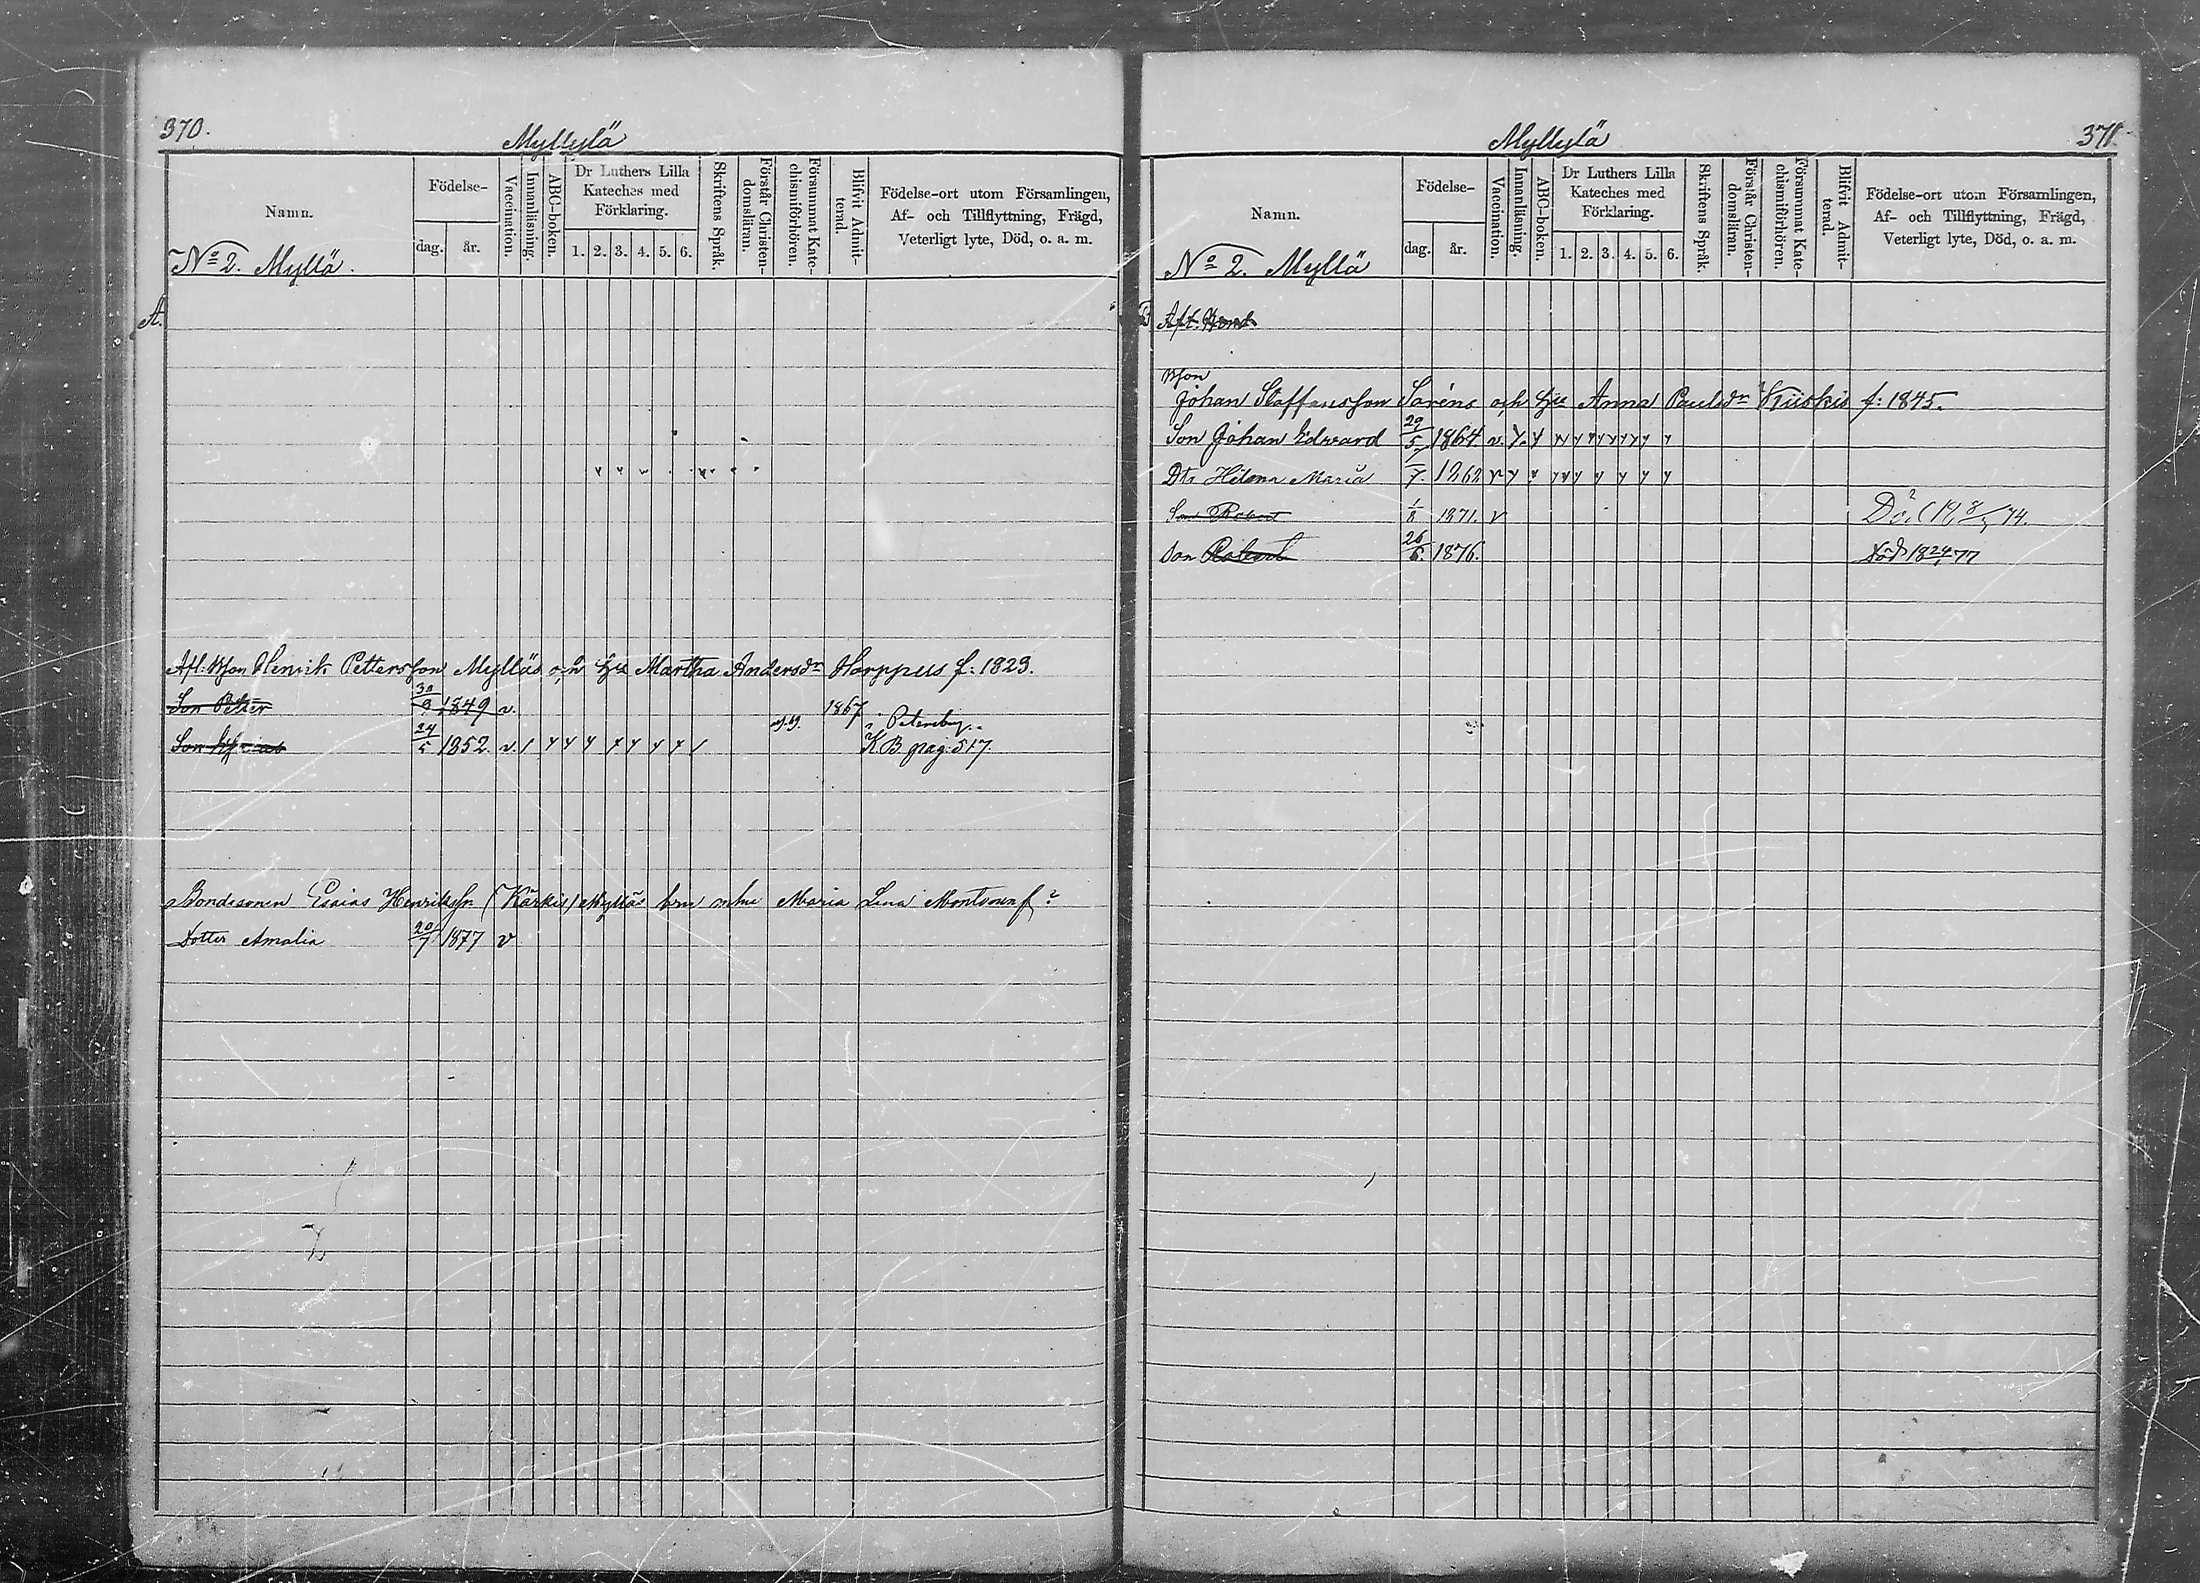 370.
Myllylä
Namn.
Födelse-
dag.
år.
Vaccination.
Innanläsning.
ABC-boken.
Dr Luthers Lilla
Kateches med
Förklaring.
1. 2. 3. 4. 5. 6.
Skriftens Språk.
Förstår Christen-
domsläran.
Försummat Kate-
chismiförhören.
Blifvit Admit-
terad.
Födelse-ort utom Församlingen,
Af- och Tillflyttning, Frägd,
Veterligt lyte, Död, o. a. m.
No 2. Myllä.
A.
Afl. Bson Henrik Pettersson Mylläs och hu Martha Andersdr Harppus f: 1823.
Son Petter 30/3 1849 v. 1867
Petersburg.
Son 24/5 1852 v.
K.B. pag: 517
Bondesonen Esaias Henrikssn (Kärkis) Mylläs barn m hu Maria Lena f?
Dotter Amalia 20/7 1877 v
Myllylä
371.
Namn.
Födelse-
dag.
år.
Vaccination.
Innanläsning.
ABC-boken.
Dr Luthers Lilla
Kateches med
Förklaring.
1. 2. 3. 4. 5. 6.
Skriftens Språk.
Förstår Christen-
domsläran.
Försummat Kate-
chismiförhören.
Blifvit Admit-
terad.
Födelse-ort utom Församlingen,
Af- och Tillflyttning, Frägd,
Veterligt lyte, Död, o. a. m.
No 2. Myllä
B
Aft. Bond
Bson
Johan Staffansson Saréns och hu Anna Paulsdr Kiiskis f: 1845.
Son Johan Edvard 29/5 1864 v.
Dtr Helena Maria 1262
Son Robert 1/8 1871. v
Son Robert 26/6. 1876.
Död 18 77